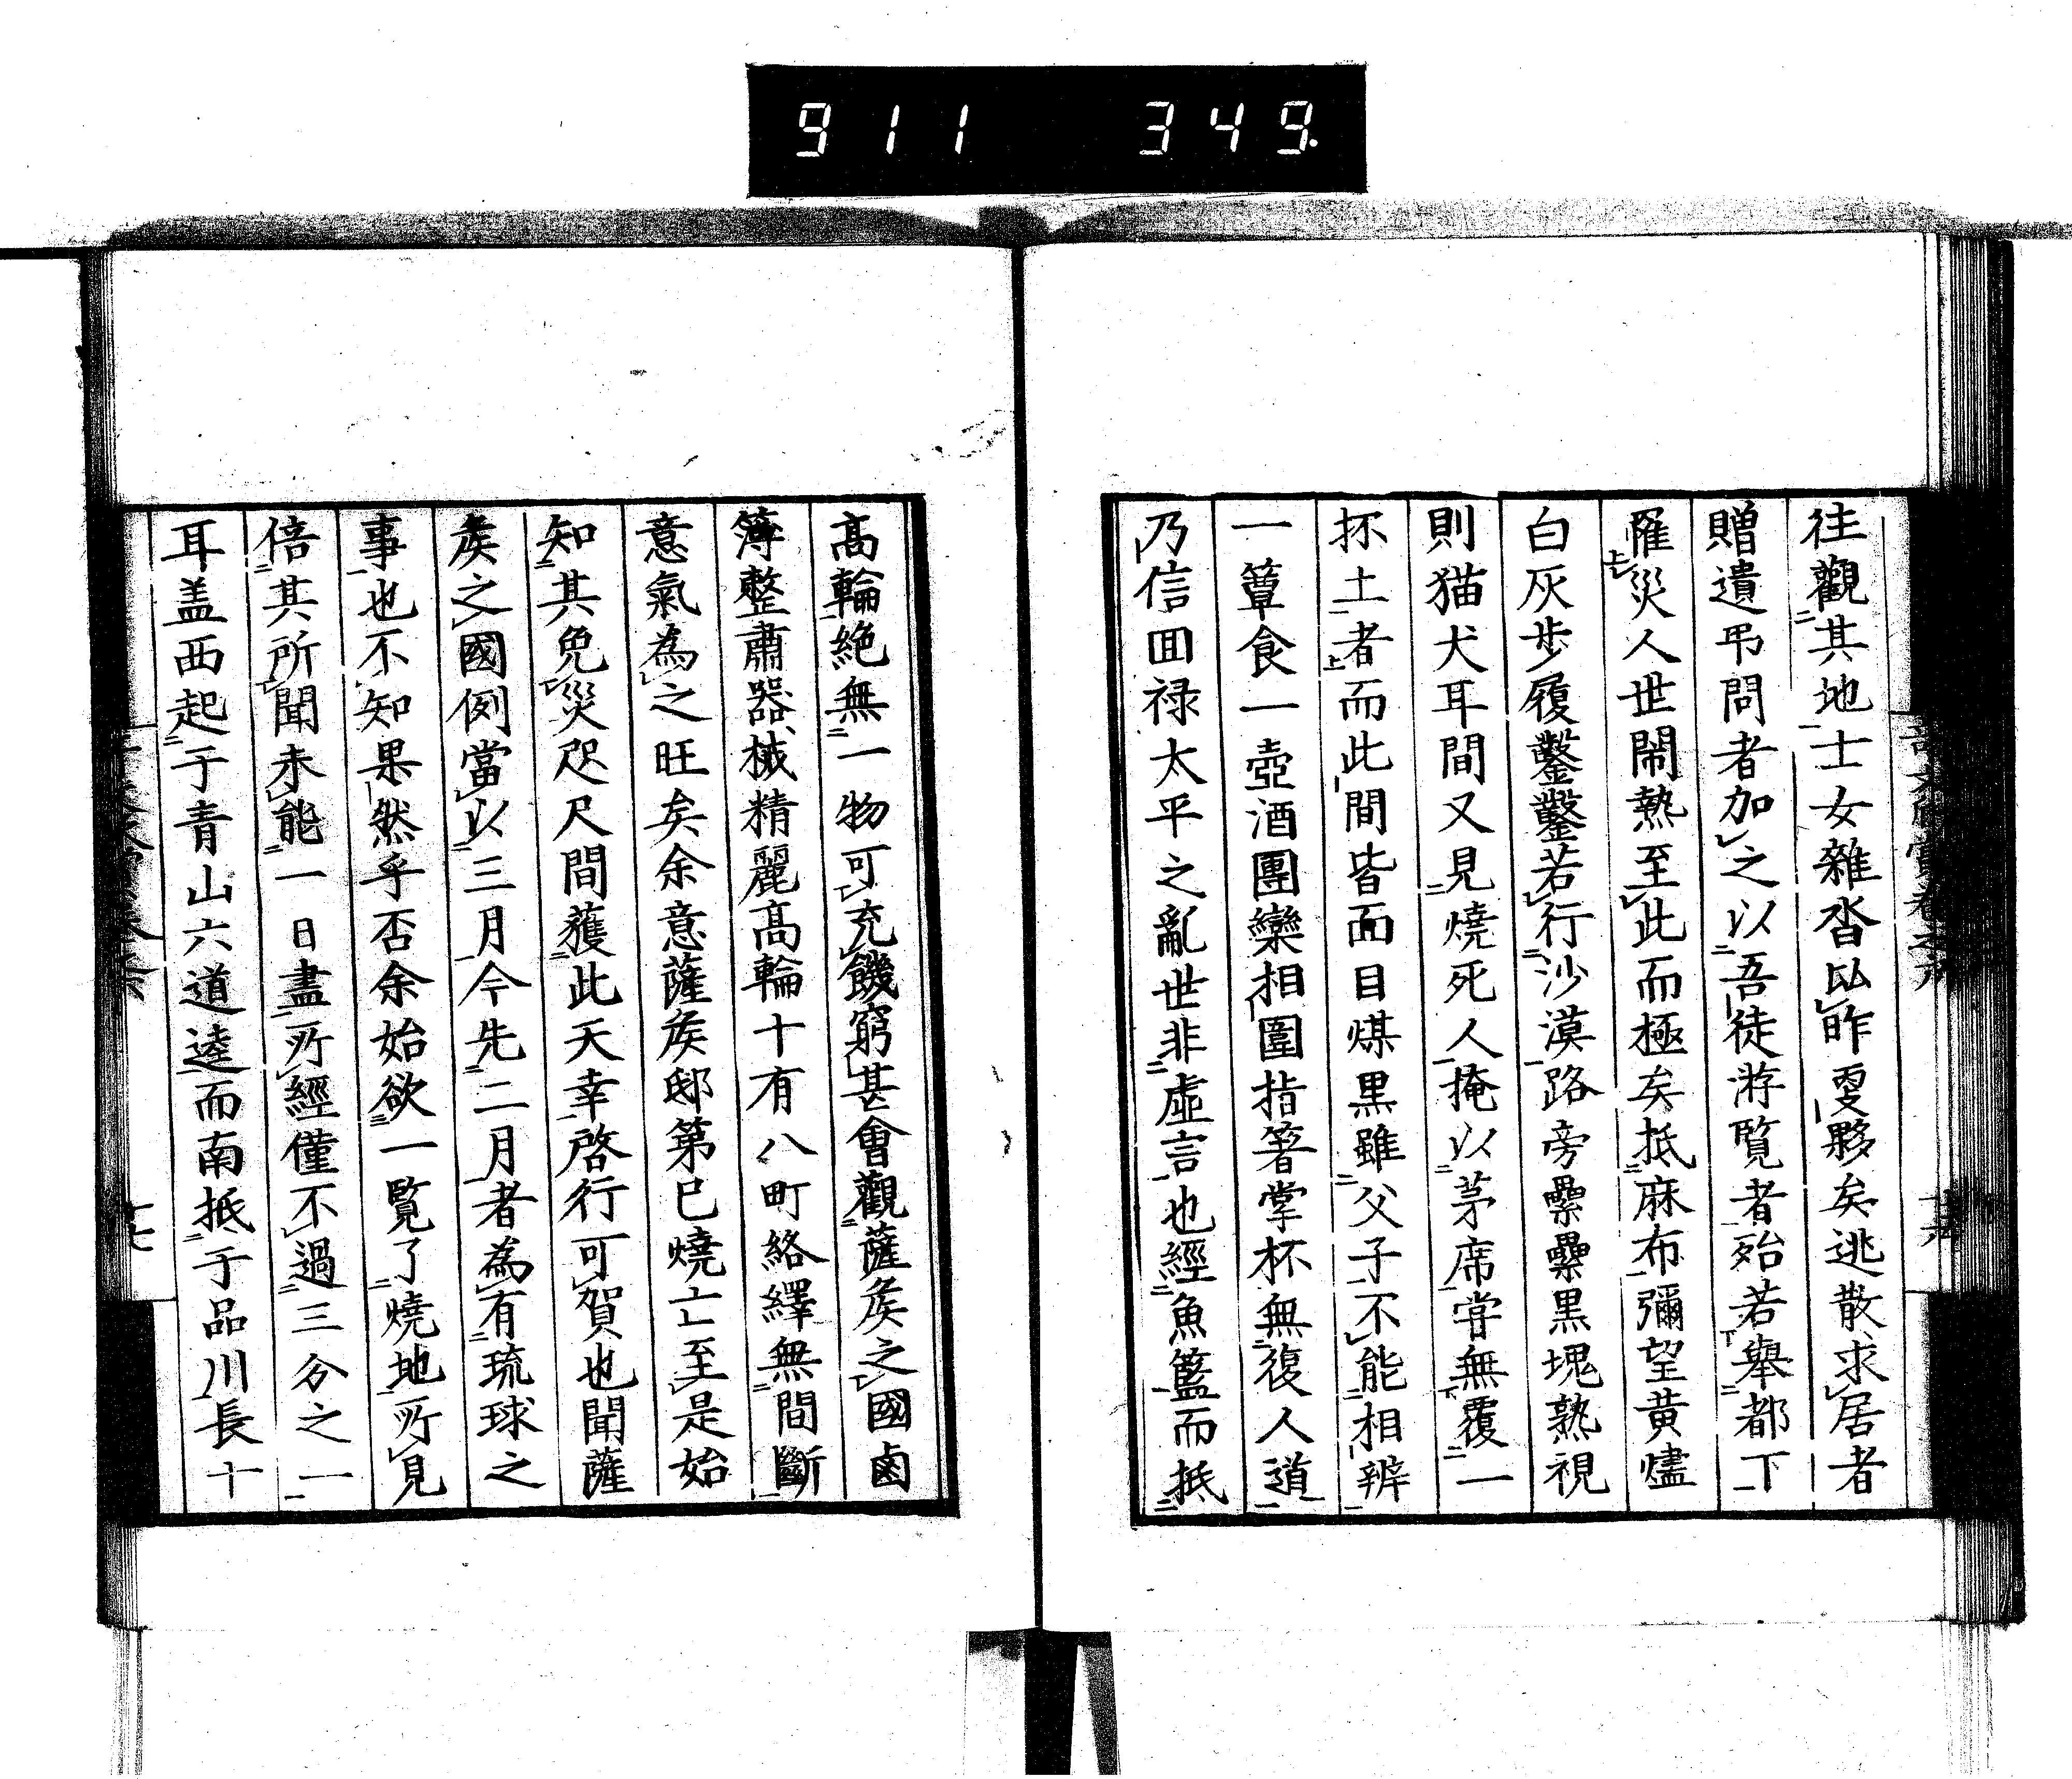 911 349.
徃觀其地士女雜沓㠯昨更夥矣逃散求居者
贈遺弔問者加之以吾徒游覧者殆若舉都下
罹災人世閙熱至此而極矣抵麻布彌望黄燼
白灰步履鑿鑿若行沙漠路旁纍纍黒塊熟視
則猫犬耳間又見燒死人掩以茅席甞無覆一
抔土者而此間皆面目煤黒雖父子不能相辨
一簞食一壺酒團欒相圍指箸掌杯無復人道
乃信回禄太平之亂世非虛言也經魚籃而抵
高輪絶無一物可充饑窮甚會觀薩侯之國鹵
簿整肅器械精麗高輪十有八町絡繹無間斷
意氣為之旺矣余意薩侯邸第已燒亡至是始
知其免災咫尺間獲此天幸啓行可賀也聞薩
侯之國例當以三月今先二月者為有琉球之
事也不知果然乎否余始欲一覧了燒地所見
倍其所聞未能一日盡所經僅不過三分之一
耳盖西起于青山六道逵而南抵于品川長十